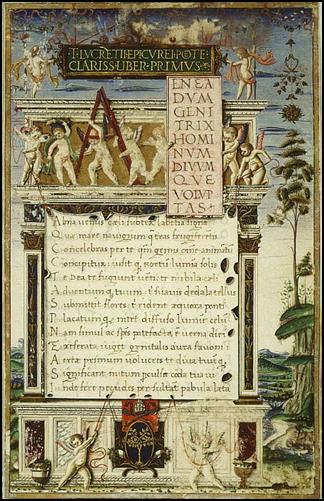 T·LVCRETII·EPICVREI·POTE·
CLARISS·LIBER·PRIMVS·
A
ENEA
DVM
GENI
TRIX
HOMI
NVM
DIVVM
QVE
VOLV
TAS
Alma venus cæli subter labentia signa
Quæ mare navigerum quæ terras frugiferētis
Concelebras per te qm̄ genus omne animātū
Concipitur visitq; exortū lumina solis
Te Dea te fugiunt venti te nubila cæli
Adventumq; tuum t' suavis dedala tellus
Submittit flores t' rident æquora ponti
Placatumq; nitet diffuso lumine celū
Nam simul ac spēs patefacta ē verna diei
Et reserata viget genitalis aura favoni
Aeriæ primum volucres te diva tuūq;
Significant initum perculsæ corda tua vi
Inde feræ pecudes persultāt pabula læta